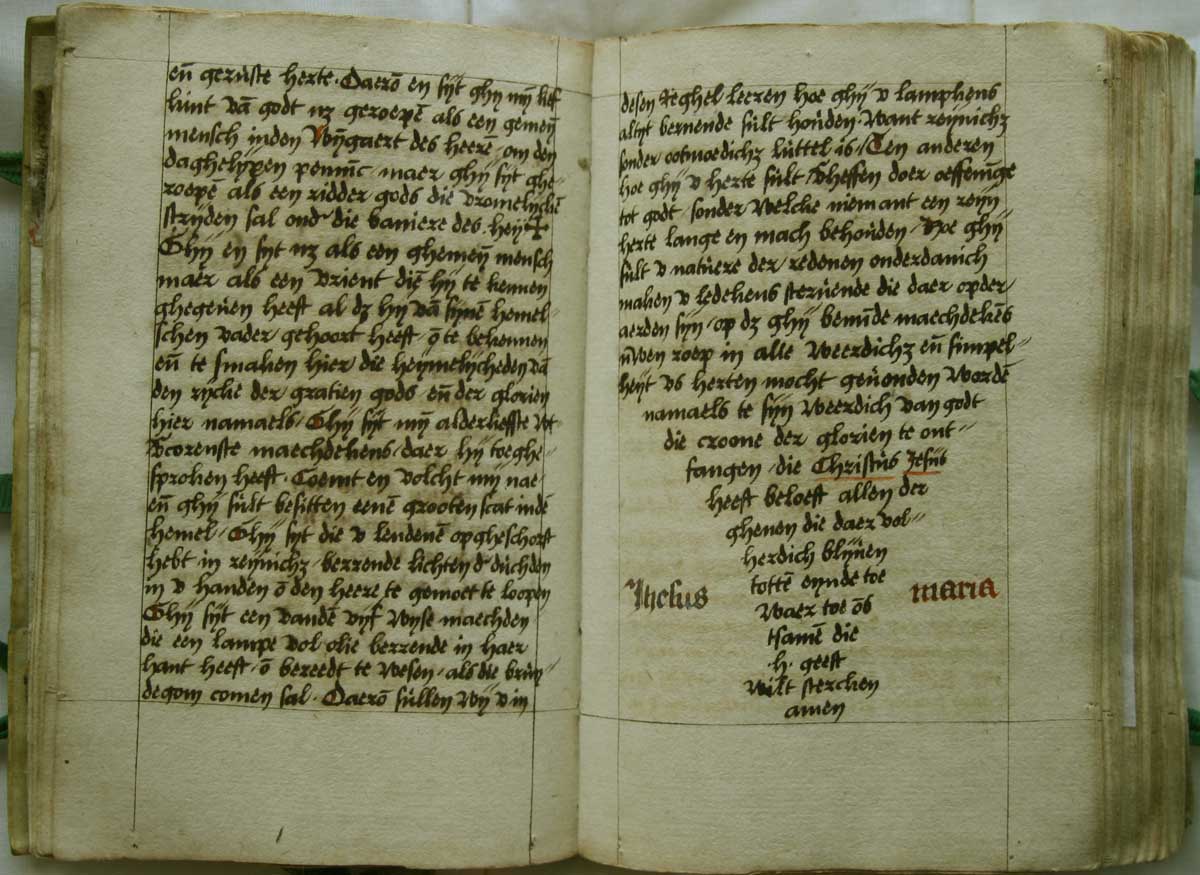 en̄ gerůste herte. Daerō en sijt ghij mȳ lief
kint vā godt nz geroepē als een gemeȳ
mensch inden Wijngaert des heerē, om den
daghelijxen pennīc, maer ghij sijt ghe-
roepē als een ridder gods die vromelijckē
strijden sal ond' die baniere des heij ✝
Ghij en sijt nz als een ghemeȳ mensch
maer als een vrient diē hij te kennen
ghegeůen heeft al dz hij vā sijnē hemel-
schen vader gehoort heeft, ō te bekennen
en̄ te smaken hier die heijmelijcheden vā
den rijcke der gratien gods, en̄ der glorien
hier namaels, Ghij sijt mȳ alderliefste wt
vcorenste maechdekens, daer hij toeghe-
sproken heeft. Coemt en volcht mij nae
en̄ ghij sůlt besitten eenē grooten scat indē
hemel, Ghij sijt die v lendenē opgheschorst
hebt in reijnichz, berrende lichten d' důchden
in v handen ō den heere te gemoet te loopen
Ghij sijt een vandē vijf wijse maechden
die een lampe vol olie berrende in haer
hant heeft, ō bereedt te wesen, als die brůij-
degom comen sal. Daerō sůllen wij v in
desen Reghel leeren hoe ghij v lampkens
altijt bernende sůlt hoůden. Want reijnichz
sonder ootmoedichz lůttel is, Ten anderen
hoe ghij v herte sůlt vheffen doer oeffenīge
tot godt, sonder welcke niemant een reijn
herte lange en mach behoůden, Hoe ghij
sůlt v natůere der redenen onderdanich
maken v ledekens sterůende die daer op der
aerden sijn, op dz ghij bemīde maechdekēs
ůwen roep in alle weerdichz en̄ simpel-
heijt vs herten mocht geůonden wordē
namaels te sijn weerdich van godt
die croone der glorien te ont-
fangen, die Christůs Jesůs
heeft beloeft allen der
ghenen die daer vol-
herdich blijůen
tottē eijnde toe
Jhesus
maria
Waer toe ōs
tsamē die
.h. geest
wilt stercken
amen